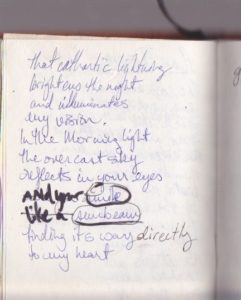 that cathartic lightning
brightens the night
and illuminates
my vision.
In the Morning light
the overcast sky
reflects in your eyes
AND your smile
like a sunbeam
finding its way directly
to my heart
g